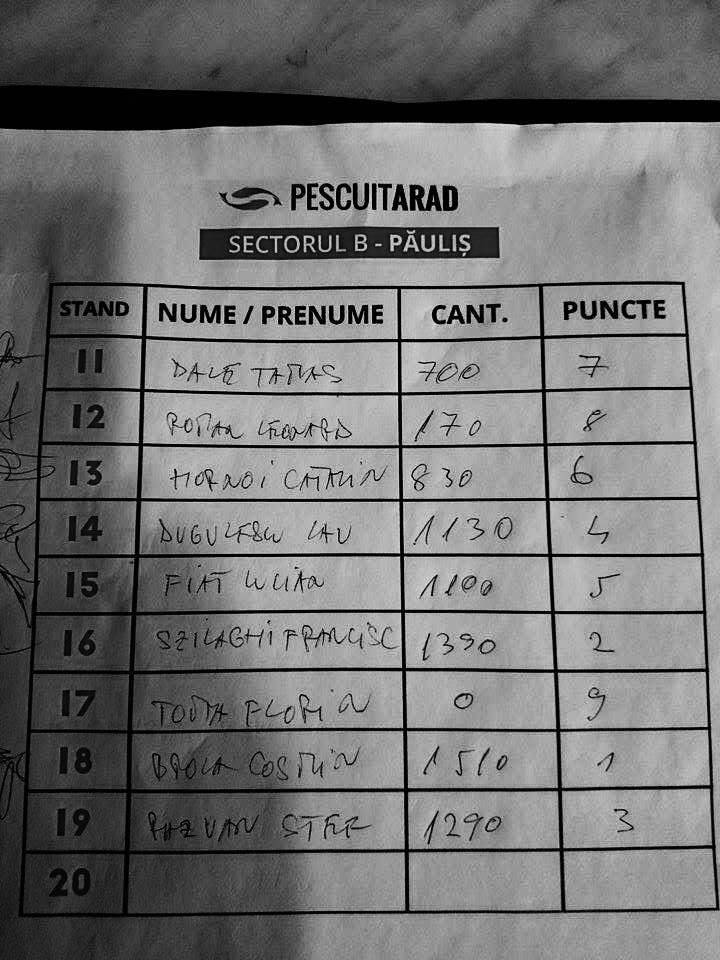 PESCUITARAD
SECTORUL B - PĂULIȘ
STAND NUME / PRENUME CANT. PUNCTE
11 DALE TAMAS 700 7
12 ROMAN LEONARD 170 8
13 HORNOI CATALIN 830 6
14 DUGULESCU LAU 1130 4
15 FIAT LUCIAN 1100 5
16 SZILAGHI FRANCISC 1390 2
17 FLORIN 0 9
18 COSTMIN 1510 1
19 RAZVAN STEF 1290 3
20